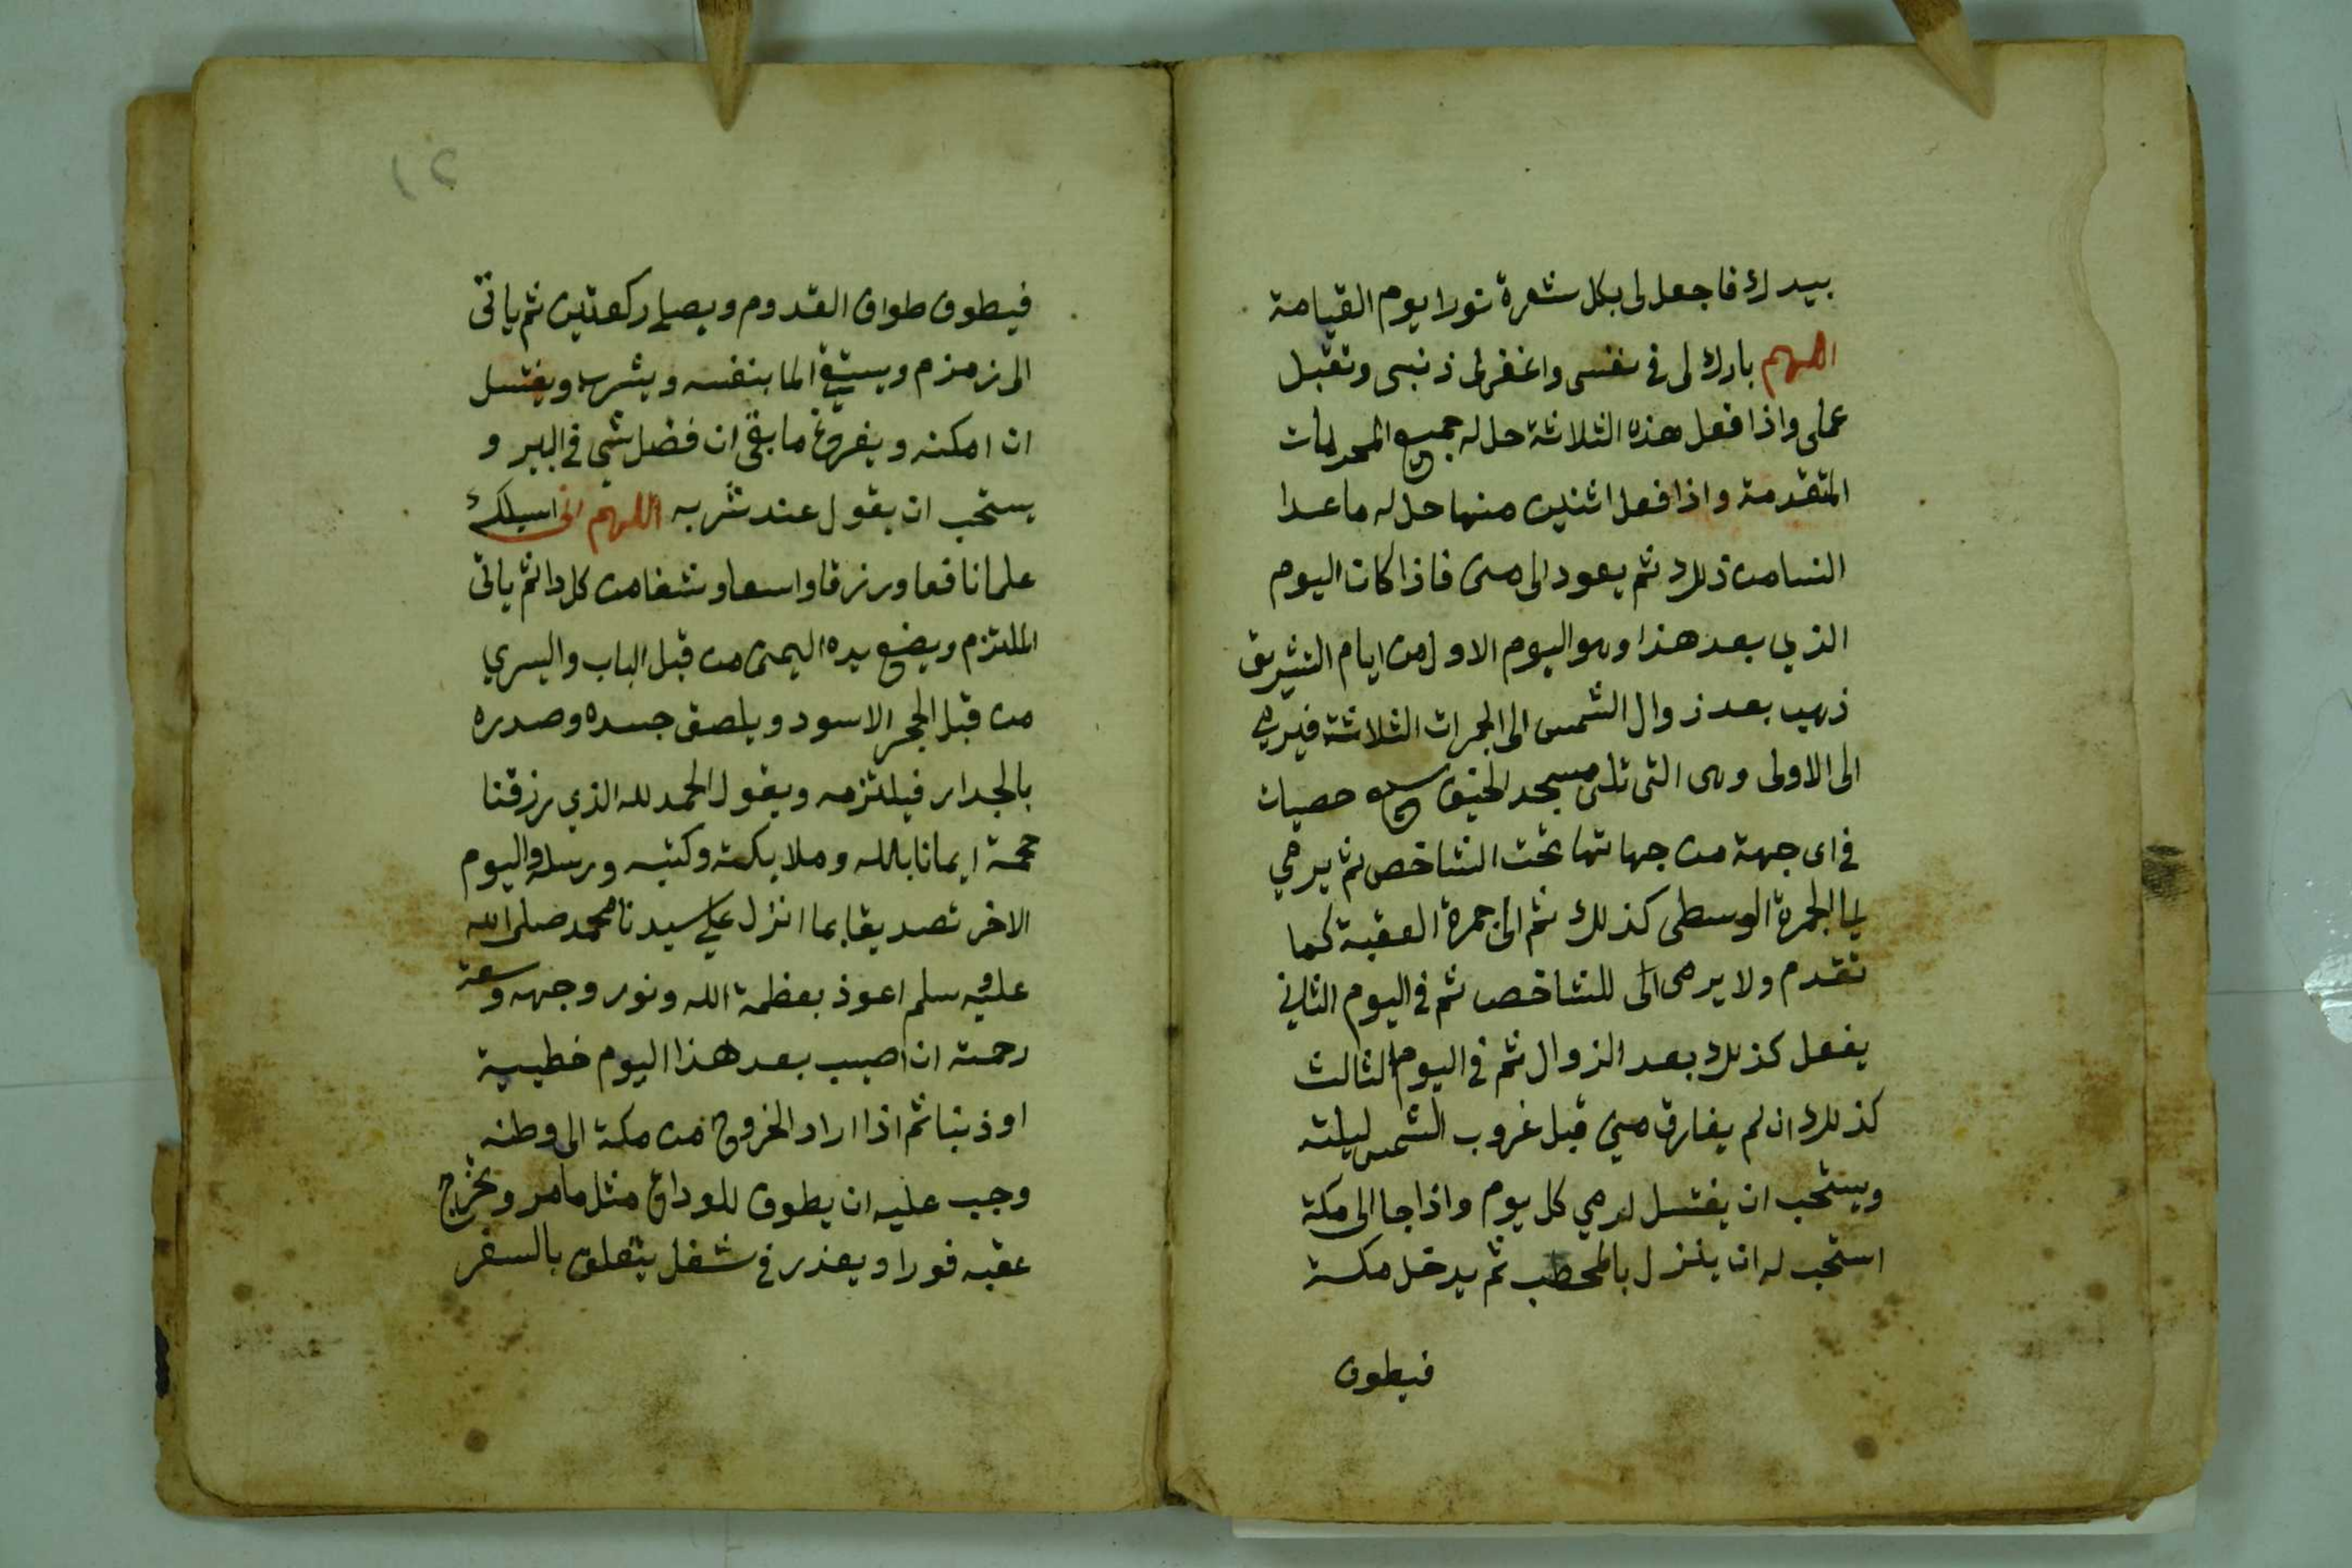 بيدك فاجعل لى بكل شعرة نورا يوم القيامة
اللهم بارك لى فى نفسى واغفر لى ذنبى وتقبل
عملى واذا فعل هذه الثلاثة حل له جميع المحرمات
المتقدمة واذا فعل اثنين منها حل له ما عدا
النسا من ذلك ثم يعود الى منى فاذا كان اليوم
الذي بعد هذا وهو اليوم الاول من ايام التشريق
ذهب بعد زوال الشمس الى الجمرات الثلاثة فيرمي
الى الاولى وهى التى تلى مسجد الخيف سبع حصيات
في اى جهة من جهاتها تحت الشاخص ثم يرمي
الى الجمرة الوسطى كذلك ثم الى جمرة العقبة كما
تقدم ولا يرمى الى للشاخص ثم في اليوم الثاني
يفعل كذلك بعد الزوال ثم في اليوم الثالث
كذلك ان لم يفارق منى قبل غروب الشمس ليلته
ويستحب ان يغتسل لرمي كل يوم واذا جا الى مكة
استحب له ان ينزل بالمحطب ثم يدخل مكة
فيطوف
١٢
فيطوف طواف القدوم ويصلي ركعتين ثم ياتى
الى زمزم ويستقي الما بنفسه ويشربه ويغتسل
ان امكنه ويفرغ ما بقى ان فضل شي في البير و
يستحب ان يقول عند شربه اللهم انى اسيلك
علما نافعا ورزقا واسعا وشفا من كل دا ثم ياتى
الملتزم ويضع يده اليمنى من قبل الباب واليسري
من قبل الحجر الاسود ويلصق جسده وصدره
بالجدار فيلتزمه ويقول الحمد لله الذي رزقنا
حجة ايمانا بالله وملايكته وكتبه ورسله واليوم
الاخر تصديقا بما انزل علي سيدنا محمد صلى الله
عليه وسلم اعوذ بعظمة الله ونور وجهه وسعة
رحمته ان اصيب بعد هذا اليوم خطيية
او ذنبا ثم اذا اراد الخروج من مكة الى وطنه
وجب عليه ان يطوف للوداع مثل ما مر ويخرج
عقبه فورا ويعذر في شغل يتعلق بالسفر